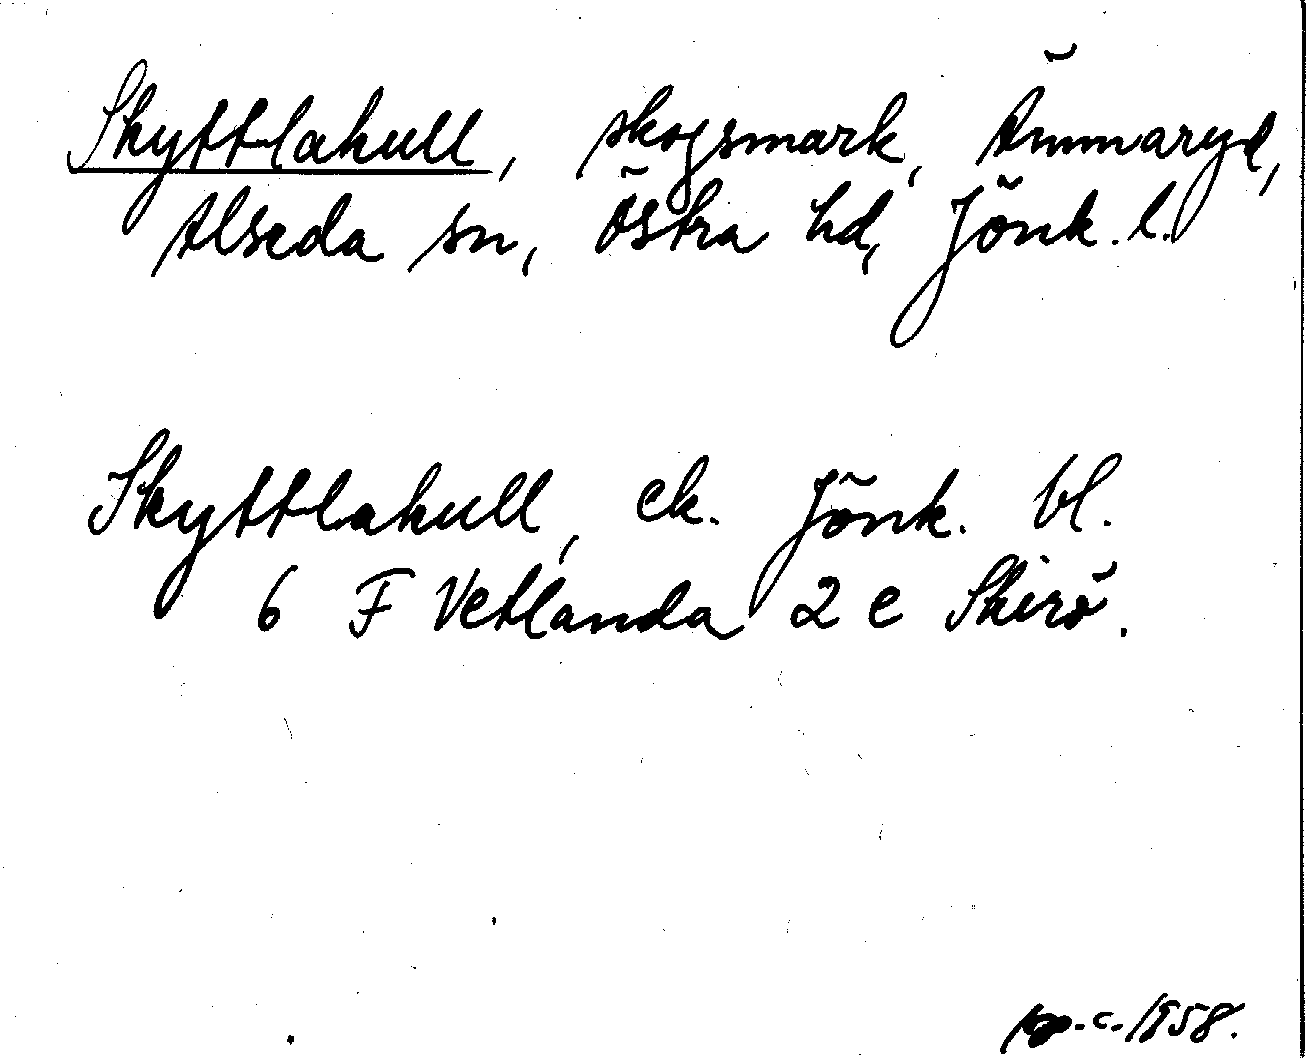 Skyttlakull, skogsmark, Ämmaryd,
Alseda sn, Östra hd, Jönk. l.
Skyttlakull, ek. Jönk. bl.
6 F Vetlanda 2 e Skirö.
c. 1958.